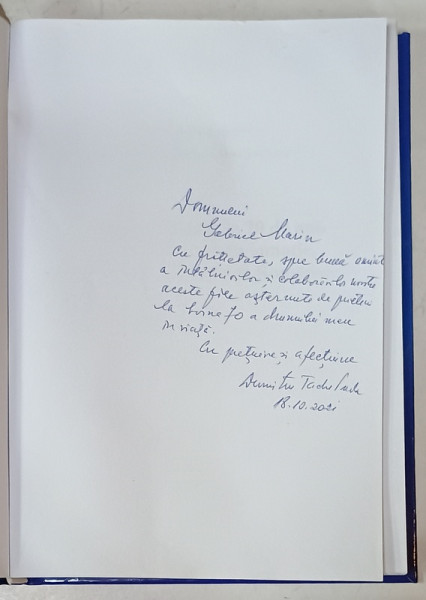 Domnului
Gabriel Marin
Cu prietetate, spre bună amintire
a întâlnirilor și colaborărilor noastre
aceste file așternute de
la borna 70 a drumului meu
în viață.
Cu prețuire și afecțiune
Dumitru
18.10.2021